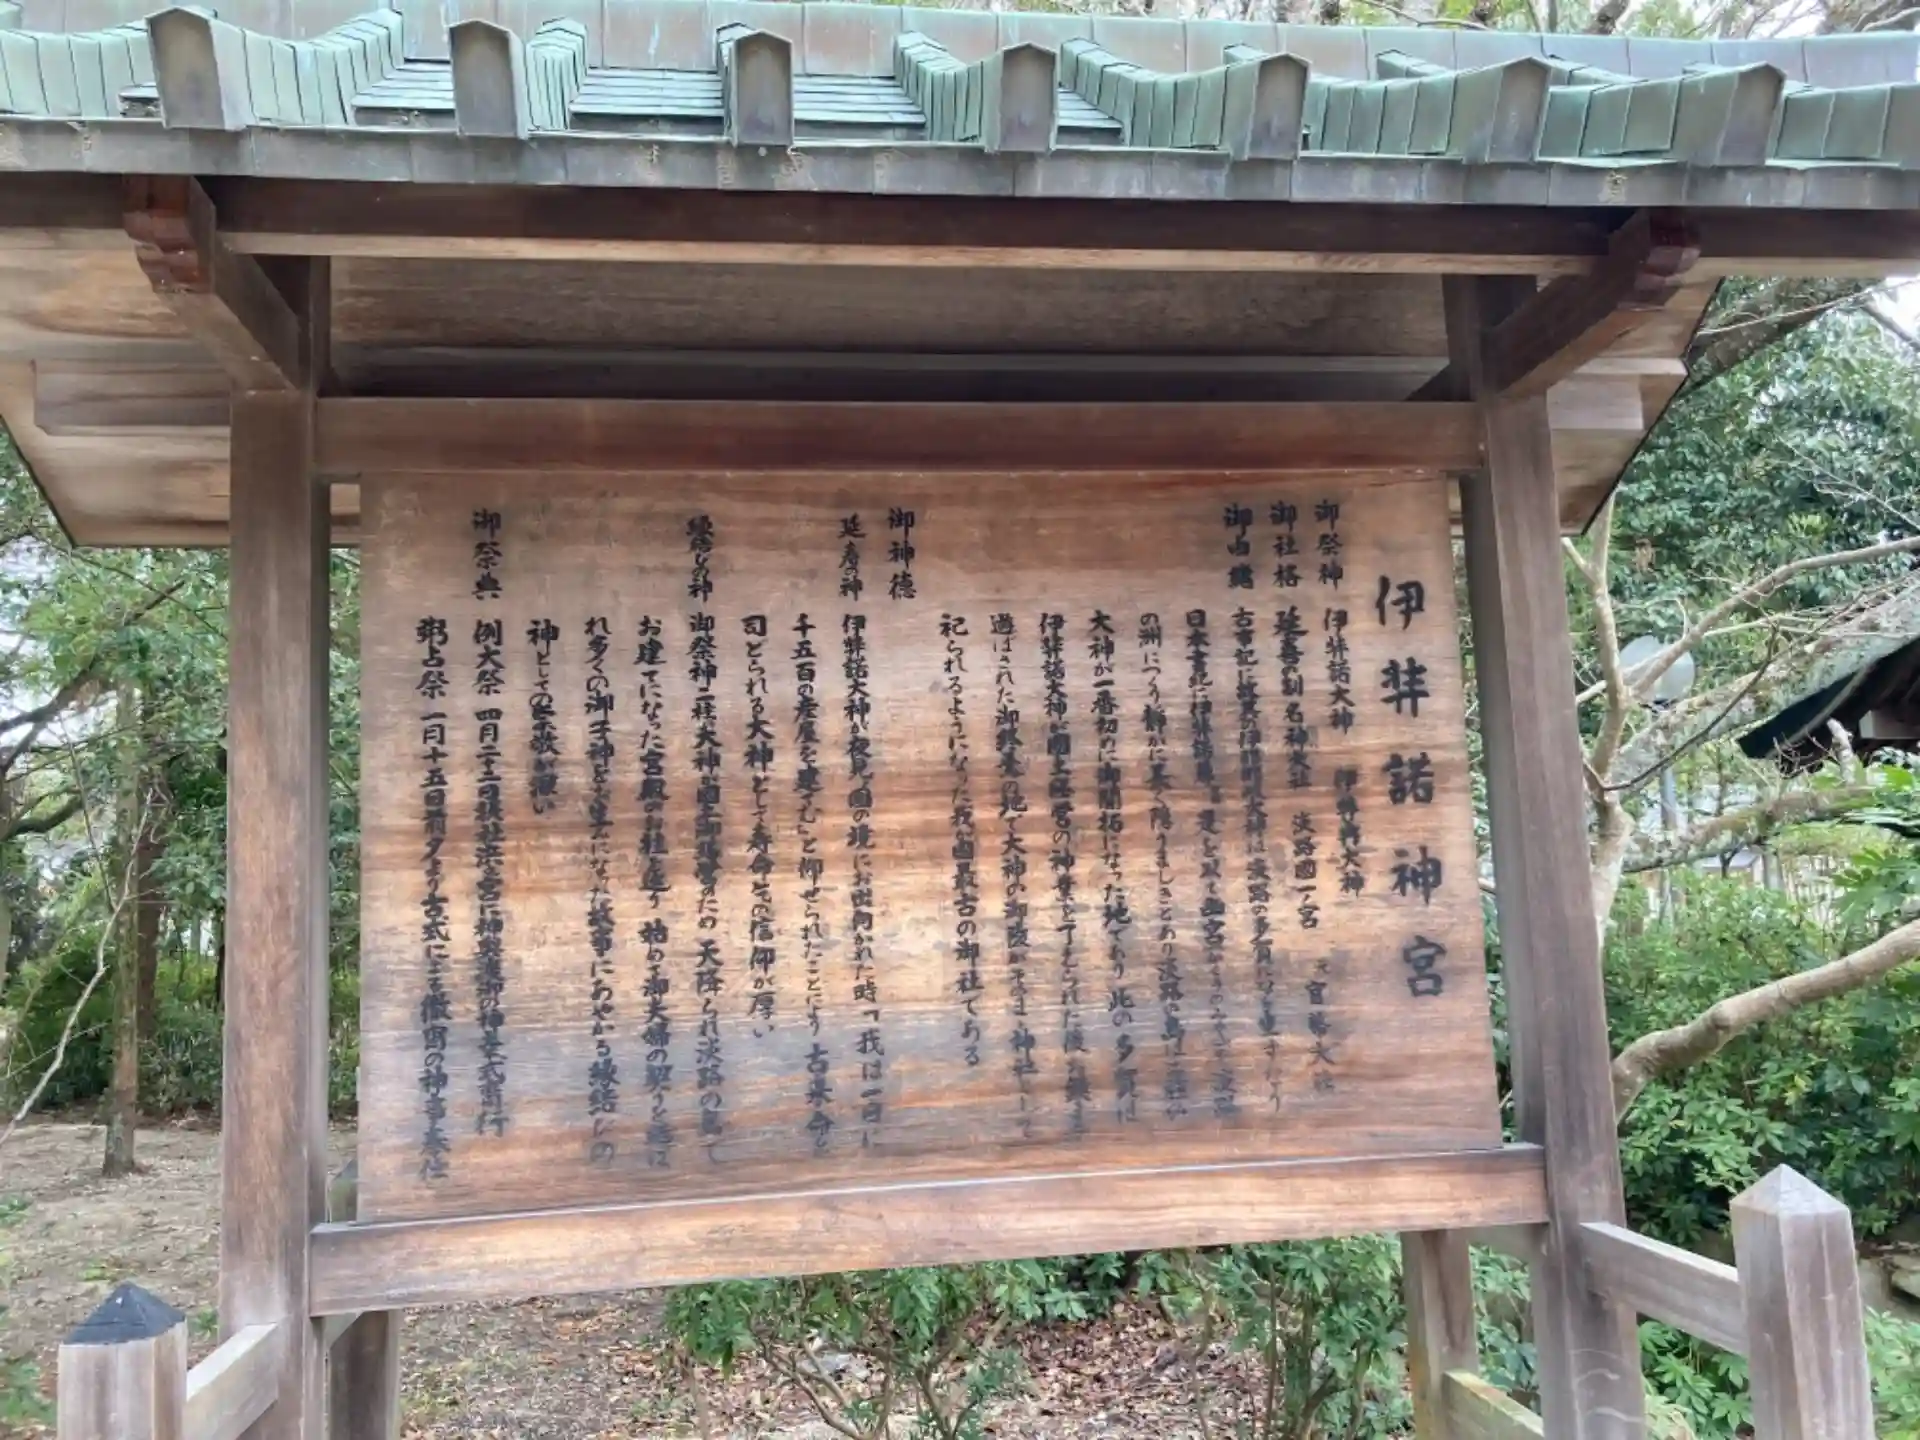 伊弉諾神宮
御祭神 伊弉諾大神 伊弉冉大神
御社格 延喜の制 名神大社 淡路國一ノ宮 官幣大社
御由緒 古事記に故其伊耶那岐大神は淡路の多賀になも坐すなり
日本書紀に伊弉諾尊 是を以て幽宮を
の洲につくり静かに長く隠りましきとあり淡路の島は
大神が一番初めに御開拓になった地であり 此の多賀は
伊弉諾大神が國土経営の神業を了えられた後お鎮まり
遊ばされた御終焉の地で大神の御陵がそのまま神社として
祀られるようになった我國最古の御社である
御神徳
延寿の神 伊弉諾大神が夜見の国の境にお出向かれた時「我は一日に
千五百の産屋を建てむ」と仰せられたことにより 古来 命を
司どられる大神として寿命を の信仰が厚い
縁結びの神 御祭神二柱大神は國土御経営のため 天降られ淡路の島で
お建てになった宮殿のお柱を廻り 始めて御夫婦の契りを結ば
れ多くの御子神をお生みになった故事にあやかる縁結びの
神としての崇敬が深い
御祭典 例大祭 四月二十二日 濱宮に神輿渡御の神幸式斎行
粥占祭 一月十五日前夕より古式による徹宵の神事奉仕